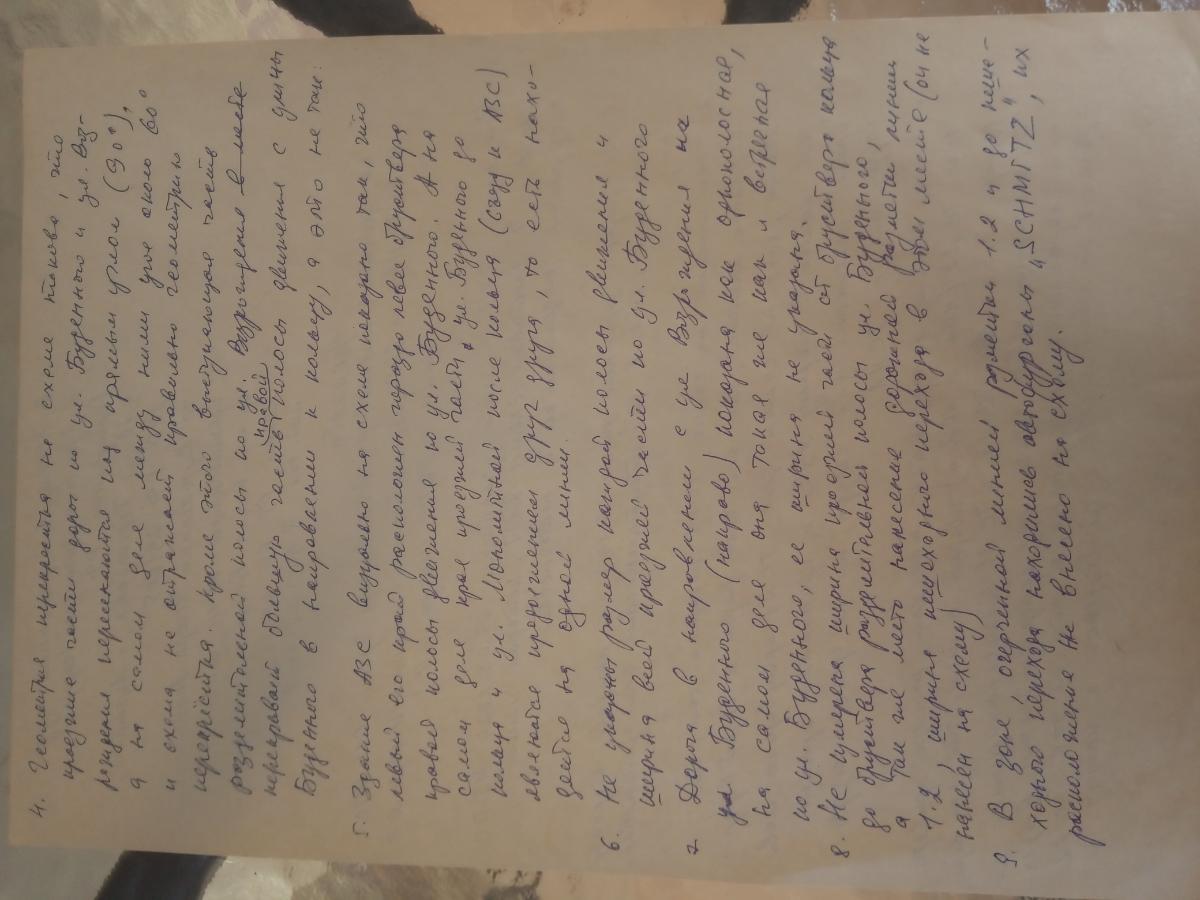 4. Геометрия перекрестка на схеме такова, что
проезжие части дорог по ул. Буденного и ул. Воз-
рождения пересекаются под прямым углом (90°),
а на самом деле между ними угол около 60°
и схема не отражает правильно геометрию
перекрёстка. Кроме этого выступающая часть
разделительной полосы по ул. Возрождения в месте
перекрывай большую часть правой полосы движения с улицы
Буденного в направлении к кольцу, а это не так.
5. Здание АВС визуально на схеме показано так, что
левый его край расположен гораздо левее бруствера
правой полосы движения по ул. Буденного. А на
самом деле края проезжей части ул. Буденного до
кольца и ул. Монолитной после кольца (сзади АВС)
являются продолжением друг друга, то есть нахо-
дятся на одной линии.
6. Не указаны размер каждой полосы движения и
ширина всей проезжей части по ул. Буденного
7. Дорога в направлении с ул Возрождения на
ул Буденного (направо) показана как однополосная,
на самом деле она такая же как и встречная
по ул. Буденного, ее ширина не указана.
8. Не измерена ширина проезжей части от бруствера кольца
до бруствера разделительной полосы ул. Буденного,
а так же место нанесение дорожной разметки линии
1.2, ширина пешеходного перехода в этом месте (он не
нанесён на схему)
9. В зоне, очерченной линией разметки 1.2 и до пеше-
ходного перехода находились автобургоны „SCHMITZ", их
расположение не внесено на схему.